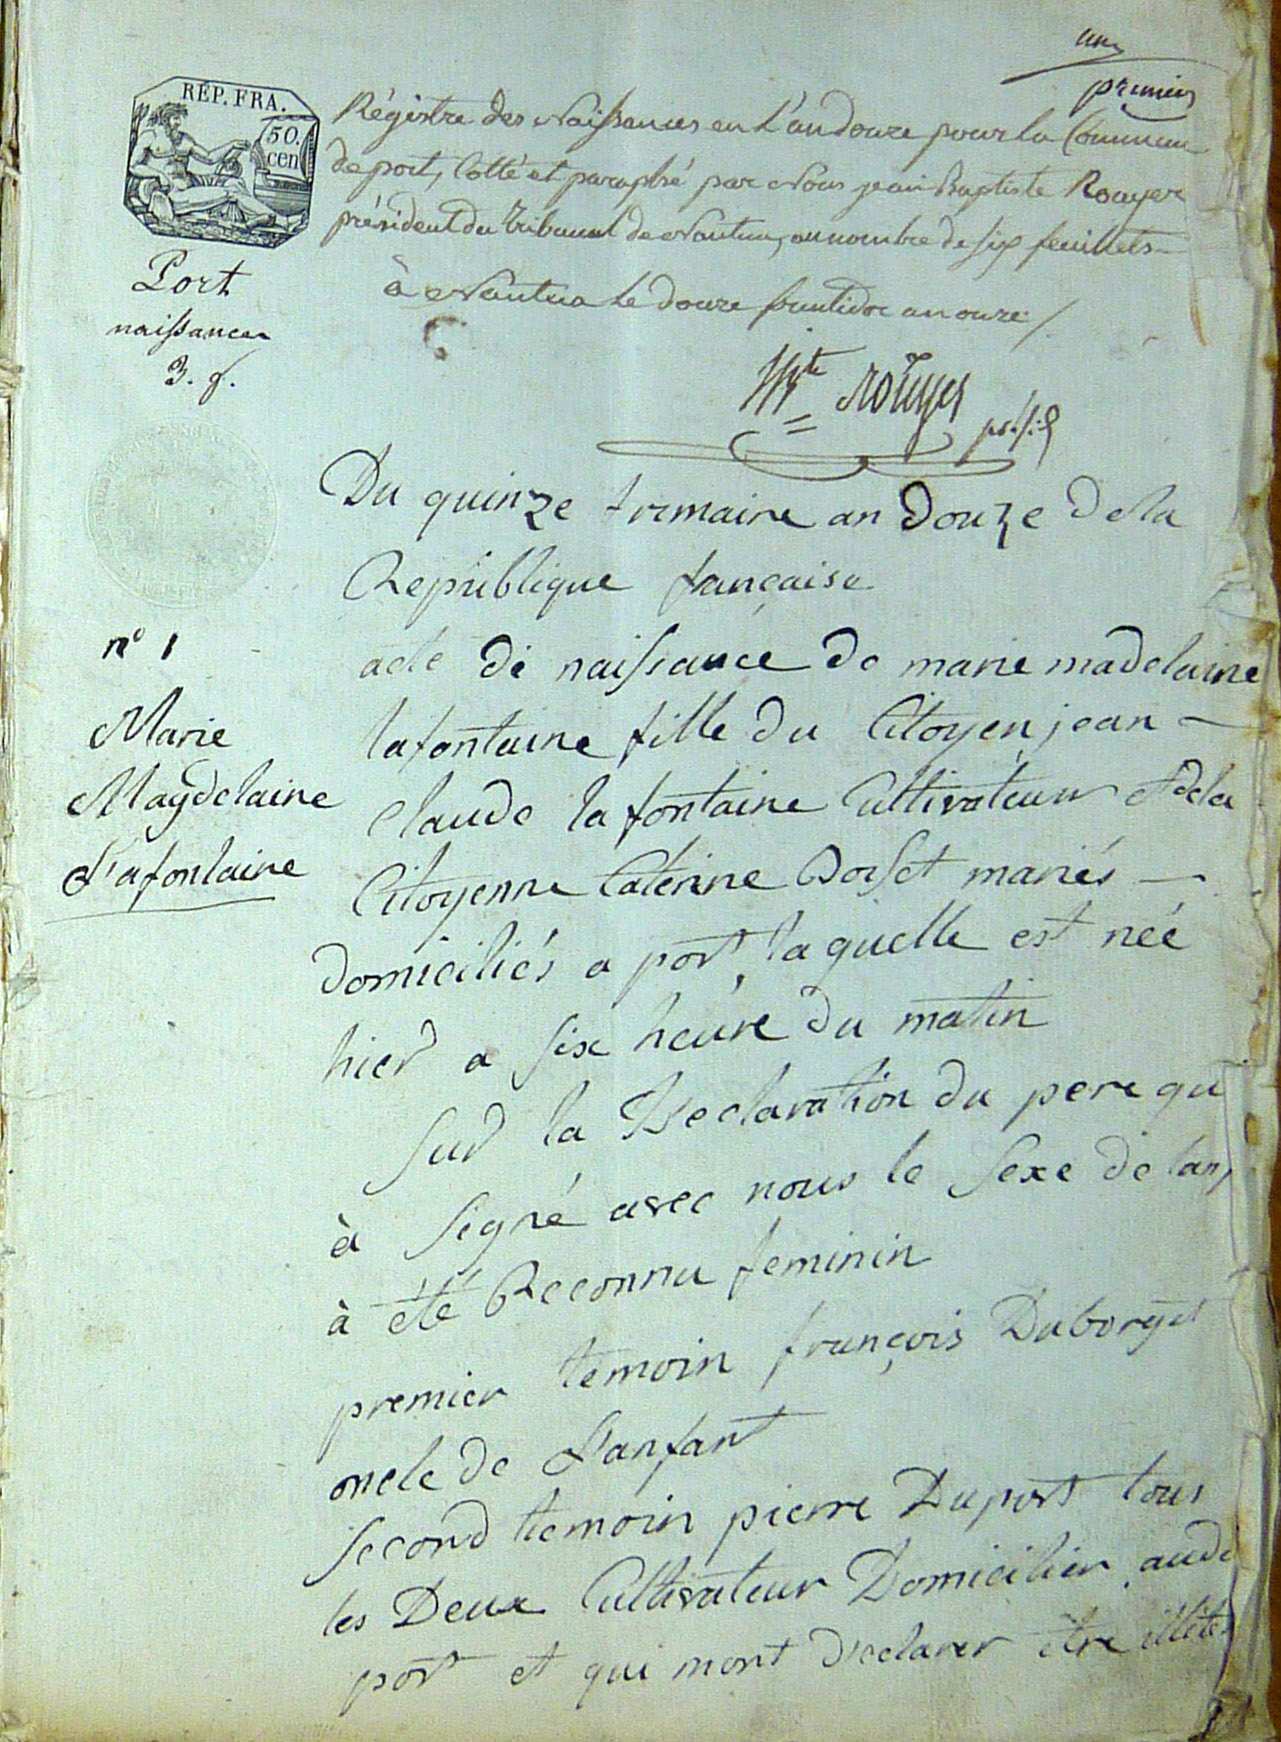 un
premier
RÉP. FRA.
50.
cen
Régistre des Naissances en L'an douze pour la Commune
de port, Cotté et paraphé par Nous jean Baptiste Rouyer
président du tribunal de Nantua, au nombre de six feuillets
à Nantua le douze fructidor an onze
Port
naissances
3. f.
Rouyer
Du quinze frimaire an douze de la
Republique française
n° 1
acte de naissance de marie madelaine
lafontaine fille du Citoyen jean
Claude lafontaine Cultivateur et de la
Citoyenne Caterine Doiset mariés
domiciliés a port laquelle est née
hier a six heure du matin
Marie
Magdelaine
Lafontaine
sur la Declaration du pere qu
à signé avec nous le sexe de lan
à été Reconnu feminin
premier temoin françois Duborget
oncle de L'anfant
second temoin pierre Duport tous
les Deux Cultivateur Domicilier audi
port et qui mont declarer etre illite